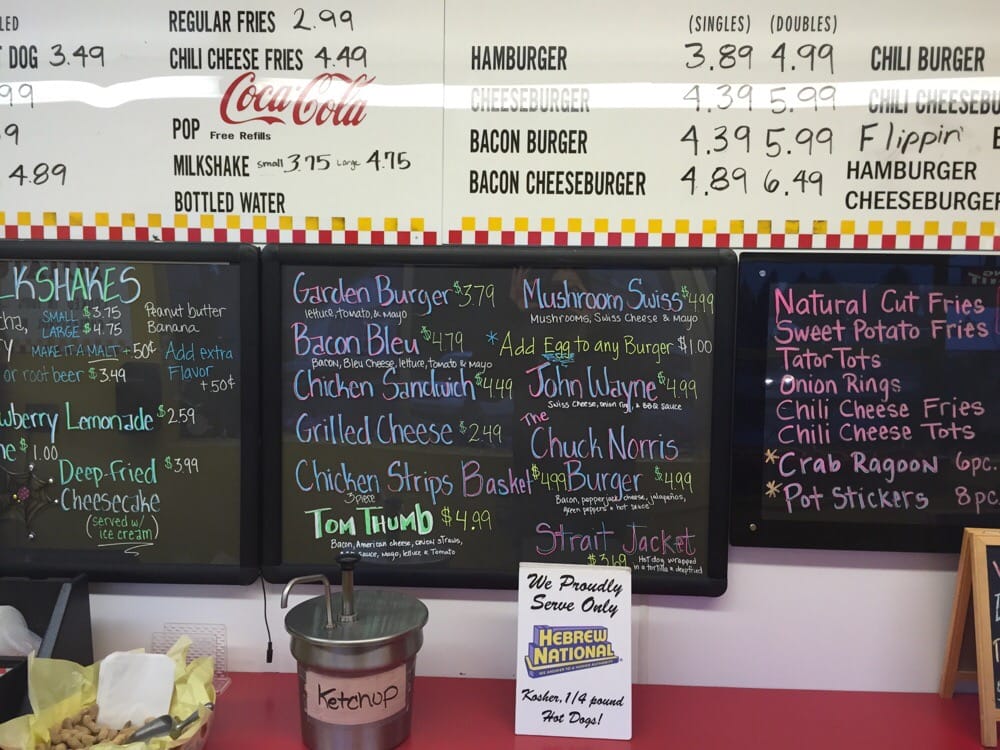 LED
DOG 3.49
99
9
4.89
REGULAR FRIES 2.99
CHILI CHEESE FRIES 4.49
Coca-Cola
POP Free Refills
MILKSHAKE small 3.75 Large 4.75
BOTTLED WATER
(SINGLES) (DOUBLES)
HAMBURGER 3.89 4.99
CHEESEBURGER 4.39 5.99
BACON BURGER 4.39 5.99
BACON CHEESEBURGER 4.89 6.49
CHILI BURGER
CHILI CHEESEBU
Flippin'
HAMBURGER
CHEESEBURGER
LKSHAKES
SMALL $3.75
LARGE $4.75
MAKE IT A MALT +50¢
or root beer $3.49
Peanut butter
Banana
Add extra
Flavor
+50¢
wberry Lemonade $2.59
$1.00
Deep-Fried $3.99
Cheesecake
(served w/
ice cream)
Garden Burger $3.79
lettuce, tomato, & mayo
Bacon Bleu $4.79
Bacon, Bleu Cheese, lettuce, tomato & mayo
Chicken Sandwich $4.49
Grilled Cheese $2.49
Chicken Strips Basket $4.99
3 piece
Tom Thumb $4.99
Bacon, American cheese, onion straws,
sauce, mayo, lettuce & Tomato
Mushroom Swiss $4.99
Mushrooms, Swiss Cheese & Mayo
*Add Egg to any Burger $1.00
John Wayne $4.99
Swiss Cheese, onion ring, & BBQ sauce
The
Chuck Norris
Burger $4.99
Bacon, pepperjack cheese, jalapeños,
green peppers & hot sauce
Strait Jacket
$3.69 Hot dog wrapped
in a tortilla & deepfried
Natural Cut Fries
Sweet Potato Fries
Tator Tots
Onion Rings
Chili Cheese Fries
Chili Cheese Tots
*Crab Ragoon 6pc.
*Pot Stickers 8pc
Ketchup
We Proudly
Serve Only
HEBREW
NATIONAL
WE ANSWER TO A HIGHER AUTHORITY
Kosher, 1/4 pound
Hot Dogs!